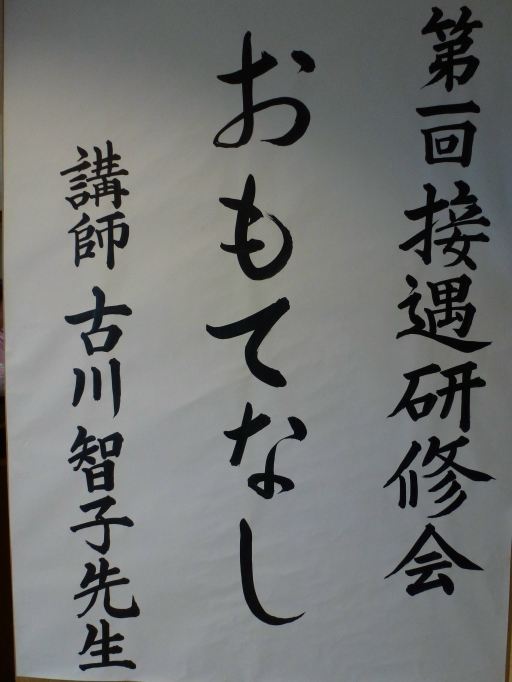 第一回接遇研修会
おもてなし
講師 古川智子先生